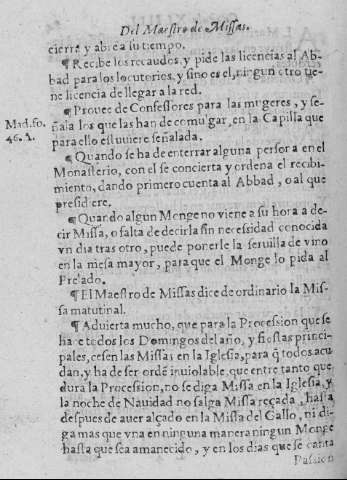 Del Maestro de Missas.
cierra y abre a su tiempo.
¶ Recibe los recaudos, y pide las licencias al Ab-
bad para los locutorios, y sino es el, ningun otro tie-
ne licencia de llegar a la red.
¶ Prouee de Confessores para las mugeres, y se-
ñala los que las han de comulgar, en la Capilla que
para ello estuuiere señalada.
Mad. fo.
46. 1.
¶ Quando se ha de enterrar alguna persona en el
Monasterio, con el se concierta y ordena el recibi-
miento, dando primero cuenta al Abbad, o al que
presidiere.
¶ Quando algun Monge no viene a su hora a de-
cir Missa, o falta de decirla sin necessidad conocida
vn dia tras otro, puede ponerle la seruilla de vino
en la mesa mayor, para que el Monge lo pida al
Prelado.
¶ El Maestro de Missas dice de ordinario la Mis-
sa matutinal.
¶ Aduierta mucho, que para la Procession que se
hace todos los Domingos del año, y fiestas princi-
pales, cessen las Missas en la Iglesia, para q̃ todos acu
dan, y ha de ser ordẽ inuiolable, que entre tanto que
dura la Procession, no se diga Missa en la Iglesia, y
la noche de Nauidad no salga Missa reçada, hasta
despues de auer alçado en la Missa del Gallo, ni di-
ga mas que vna en ninguna manera ningun Monge
hasta que sea amanecido, y en los dias que se canta
Passion